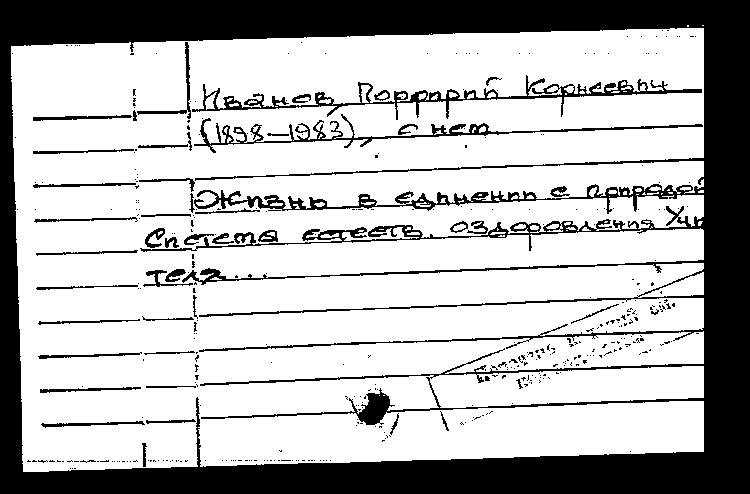 Иванов, Порфирий Корнеевич
(1898–1983), о нем.
Жизнь в единении с природой
Система естеств. оздоровления Учи
теля...